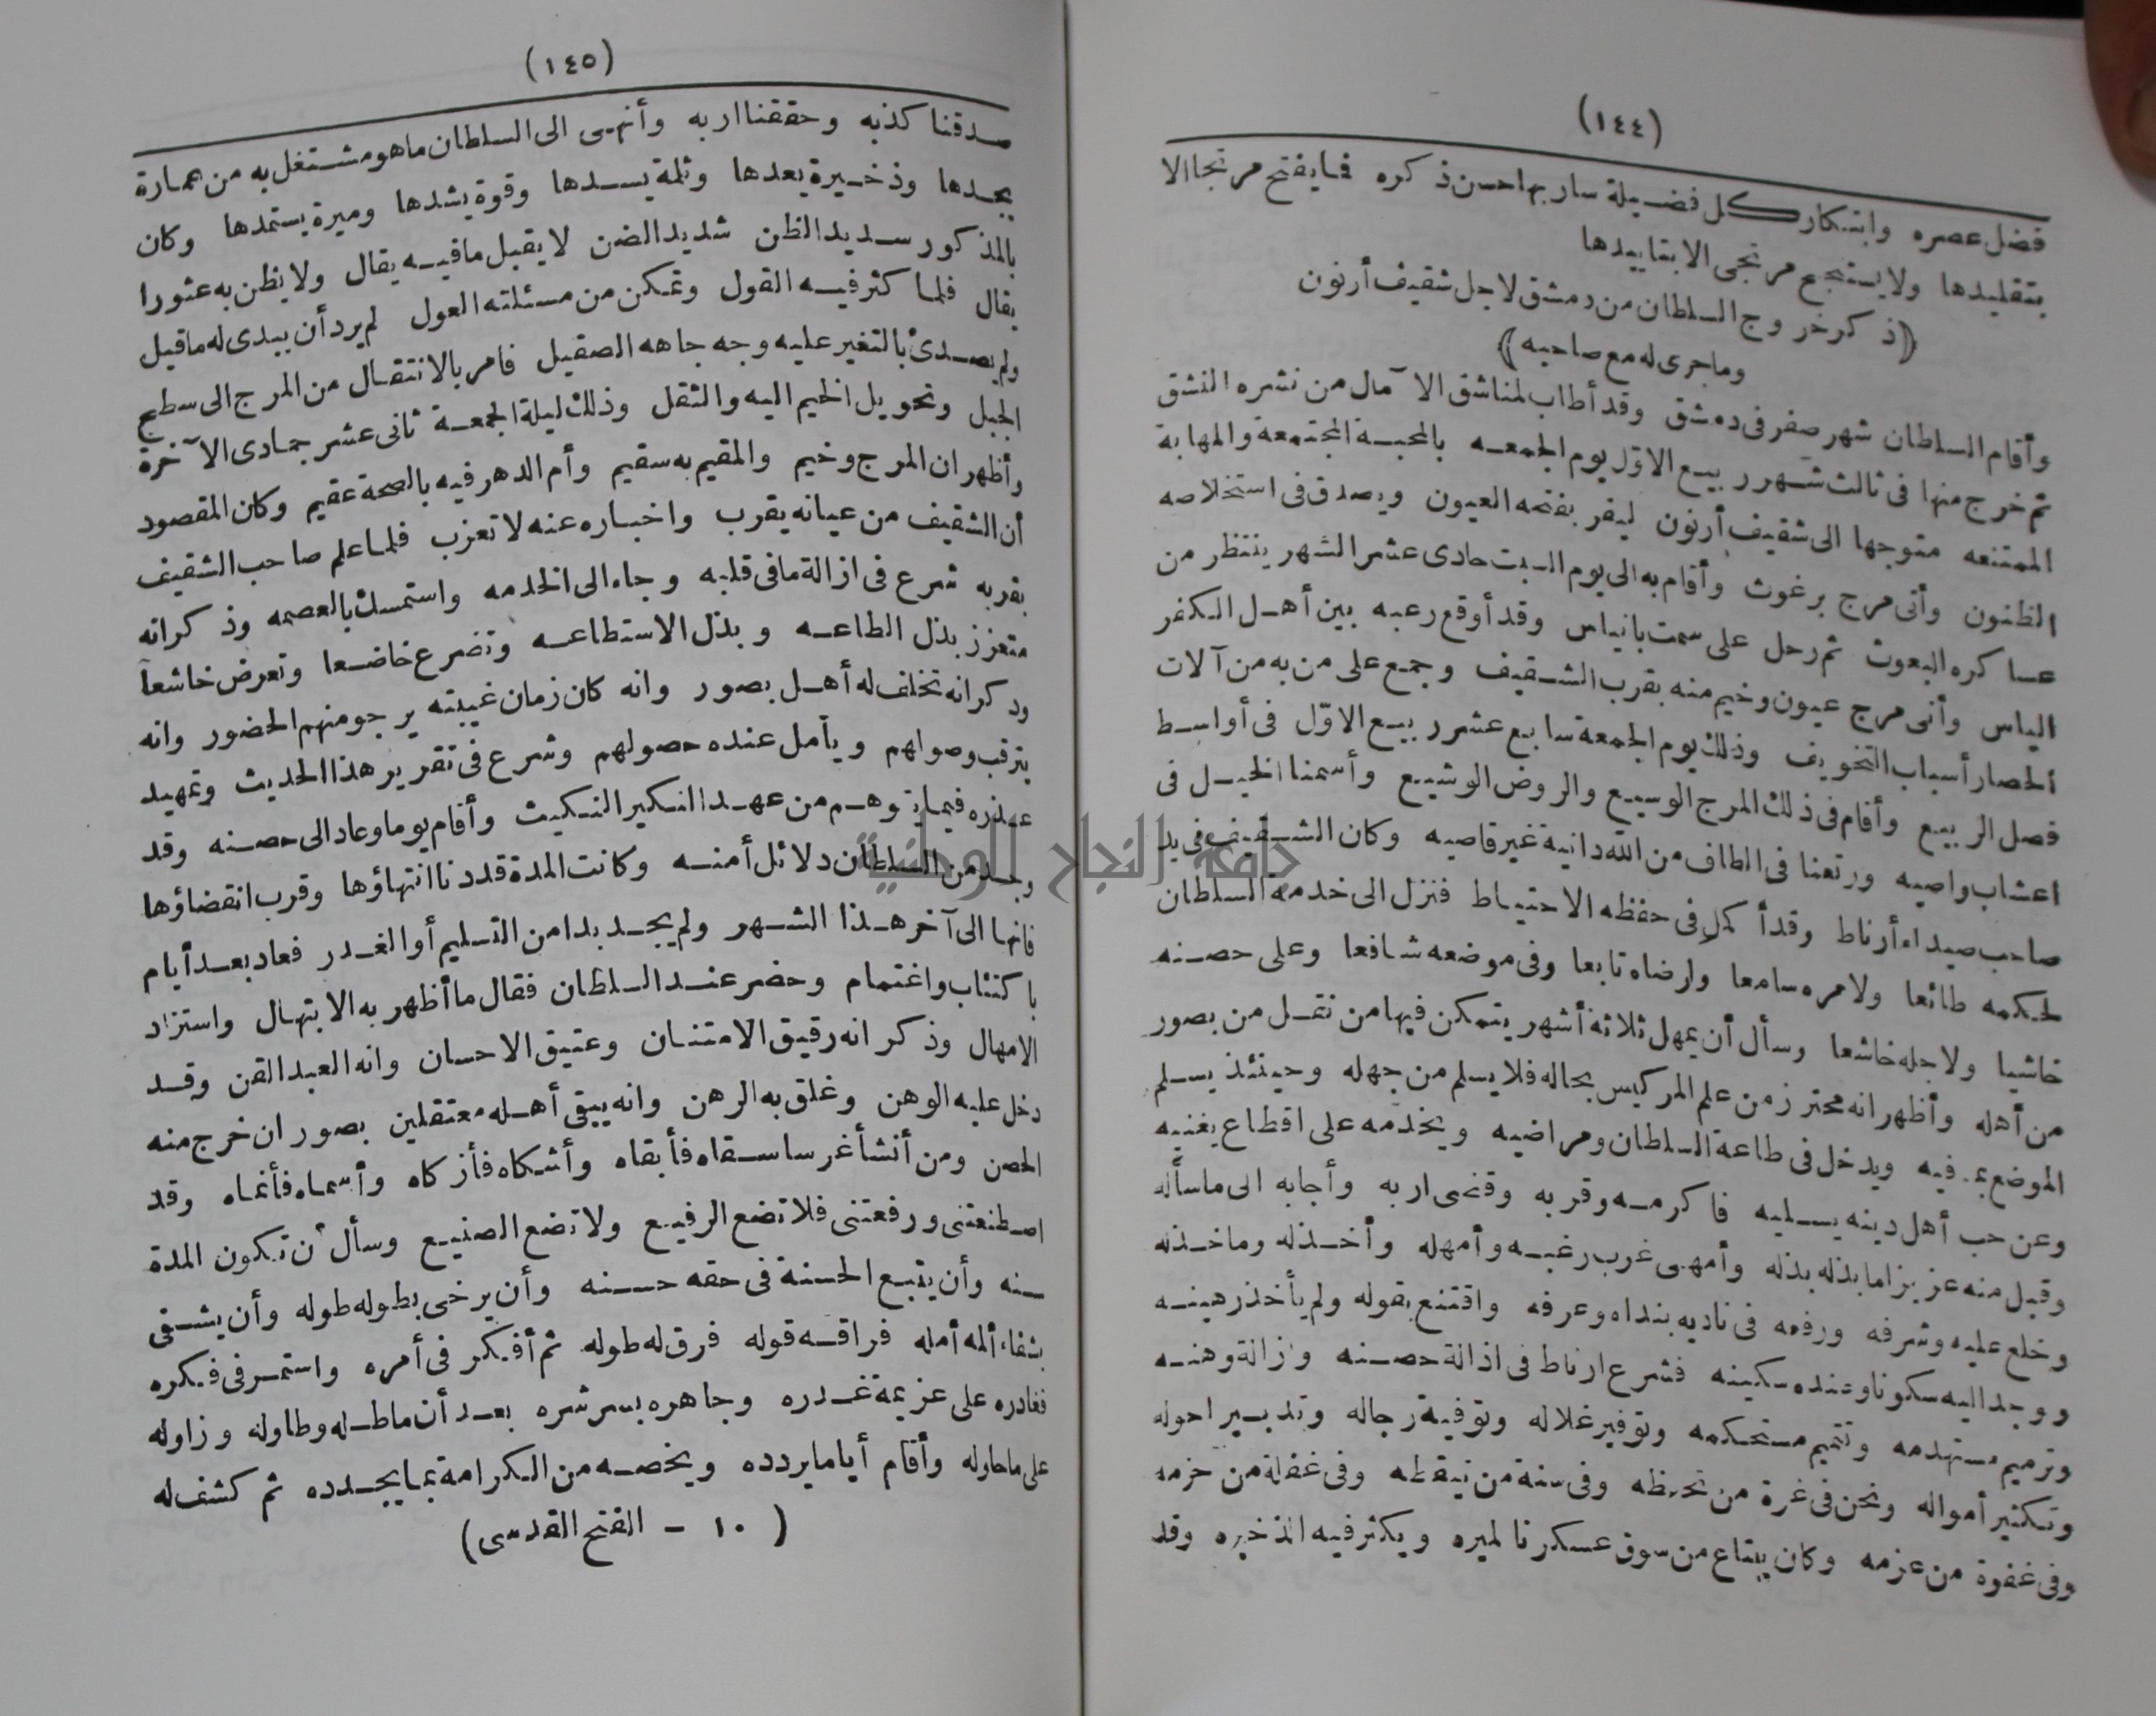 (١٤٤)
فضل عصره وابتكار كل فضيلة سار بها حسن ذكره فما يفتح مرتجا الا
بتقليدها ولا يستنجح مرتجى الا بتاييدها
(ذكر خروج السلطان من دمشق لاجل شقيف أرنون
وما جرى له مع صاحبه)
وأقام السلطان شهر صفر فى دمشق وقد أطاب لمناشق الآمال من نشره المنشق
ثم خرج منها فى ثالث شهر ربيع الاول يوم الجمعه بالمحبة المجتمعة والمهابة
الممتنعه متوجها الى شقيف أرنون ليقر بفتحه العيون ويصدق فى استخلاصه
الظنون وأتى مرج برغوث وأقام به الى يوم السبت حادى عشر الشهر ينتظر من
عساكره البعوث ثم رحل على سمت بانياس وقد أوقع رعبه بين أهل الكفر
الياس وأتى مرج عيون وخيم منه بقرب الشقيف وجمع على من به من آلات
الحصار أسباب التخويف وذلك يوم الجمعة سابع عشر ربيع الاوّل فى أواسط
فصل الربيع وأقام فى ذلك المرج الوسيع والروض الوشيع وأسمنا الخيل فى
اعشاب واصيه ورتعنا فى الطاف من الله دانية غير قاصيه وكان الشقيف فى يد
صاحب صيداء أرناط وقد أكمل فى حفظه الاحتياط فنزل الى خدمة السلطان
لحكمه طائعا ولامره سامعا وارضاه تابعا وفى موضعه شافعا وعلى حصنه
خاشيا ولاجله خاشعا وسأل أن يمهل ثلاثة أشهر يتمكن فيها من نقل من بصور
من أهله وأظهر انه محترز من علم المركيس بحاله فلا يسلم من جهله وحينئذ يسلم
الموضع بما فيه ويدخل فى طاعة السلطان ومراضيه ويخدمه على اقطاع يغنيه
وعن حب أهل دينه يسليه فاكرمه وقربه وقضى اربه وأجابه الى ماسأله
وقبل منه عزيزا ما بذله بذله وأمهى غرب رغبه وأمهله وأخذ له وما خذله
وخلع عليه وشرفه ورفعه فى ناديه بنداه وعرفه واقتنع بقوله ولم يأخذ رهينه
ووجد اليه سكونا وعنده سكينه فشرع ارناط فى اذالة حصنه وازالة وهنه
وترميم مستهدمه وتتميم مستحكمه وتوفير غلاله وتوفية رجاله وتدبير احوله
وتكثير أمواله ونحن فى غرة من تحفظه وفى سنة من تيقظه وفى غفلة من حزمه
وفى غفوة من عزمه وكان يبتاع من سوق عسكرنا الميره ويكثر فيه الذخيره وقد
(١٤٥)
صدقنا كذبه وحققنا اربه وأنهى الى السلطان ماهو مشتغل به من عمارة
يجدها وذخيرة يعدها وثلمة يسدها وقوة يشدها وميرة يستمدها وكان
بالمذكور سديد الظن شديد الضن لا يقبل مافيه يقال ولا يظن به عثورا
يقال فلما كثر فيه القول وتمكن من مسئلته العول لم يرد أن يبدى له ماقيل
ولم يصدئ بالتغير عليه وجه جاهه الصقيل فامر بالانتقال من المرج الى سطح
الجبل وتحويل الخيم اليه والثقل وذلك ليلة الجمعة ثانى عشر جمادى الآخرة
وأظهر ان المرج وخيم والمقيم به سقيم وأم الدهر فيه بالصحة عقيم وكان المقصود
أن الشقيف من عيانه يقرب واخباره عنه لا تعزب فلما علم صاحب الشقيف
بقربه شرع فى ازالة مافى قلبه وجاء الى الخدمه واستمسك بالعصمه وذكر انه
متعزز بذل الطاعه وبذل الاستطاعه وتضرع خاضعا وتعرض خاشعا
وذكر انه تخلف له أهل بصور وانه كان زمان غيبته يرجو منهم الحضور وانه
يترقب وصولهم ويأمل عنده حصولهم وشرع فى تقرير هذا الحديث وتمهيد
عذره فيما توهم من عهد النكير النكيث وأقام يوما وعاد الى حصنه وقد
وجد من السلطان دلائل أمنه وكانت المدة قد دنا انتهاؤها وقرب انقضاؤها
فانها الى آخر هذا الشهر ولم يجد بدا من التسليم أو الغدر فعاد بعد أيام
باكتئاب واغتمام وحضر عند السلطان فقال ما أظهر به الابتهال واستزاد
الامهال وذكر انه رقيق الامتنان وعتيق الاحسان وانه العبد القن وقد
دخل عليه الوهن وغلق به الرهن وانه يبقى أهله معتقلين بصور ان خرج منه
الحصن ومن أنشأ غرسا سقاه فأبقاه وأشكاه فأزكاه وأسماه فأنماه وقد
اصطنعتنى ورفعتنى فلا تضع الرفيع ولا تضع الصنيع وسأل أن تكون المدة
سنه وأن يتبع الحسنة فى حقه حسنه وأن يرخى بطوله طوله وأن يشفى
بشفاء ألمه أمله فراقه قوله فرق له طوله ثم أفكر فى أمره واستمر فى فكره
فغادره على عزيمة غدره وجاهره بسر شره بعد أن ماطله وطاوله وزاوله
على ماحاوله وأقام أياما يردده ويخصه من الكرامة بما يجدده ثم كشف له
(١٠ - الفتح القدسى)
جامعة النجاح الوطنية